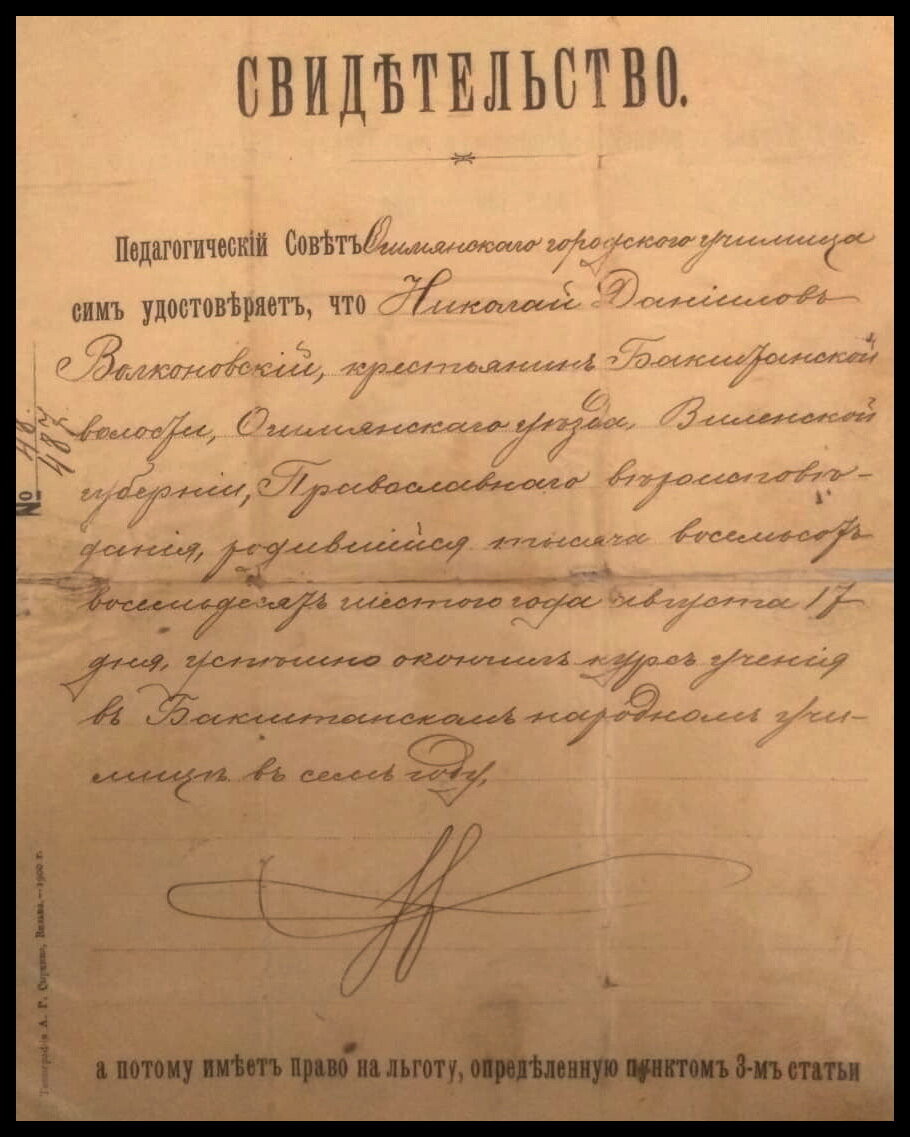 СВИДѢТЕЛЬСТВО.
Педагогическій Совѣтъ Ошмянскаго городского училища
симъ удостовѣряетъ, что Николай Даніиловъ
Волконовскій, крестьянинъ Бакштанской
волости, Ошмянскаго уѣзда, Виленской
губерніи, Православнаго вѣроисповѣ-
данія, родившійся тысяча восемьсотъ
восемьдесятъ шестого года августа 17
дня, успѣшно окончилъ курсъ ученія
въ Бакштанскомъ народномъ учи-
лищѣ въ семъ году,
а потому имѣетъ право на льготу, опредѣленную пунктомъ 3-мъ статьи
№ 48. 487.
Типографія А. Г. Сыркина, Вильна.—1900 г.